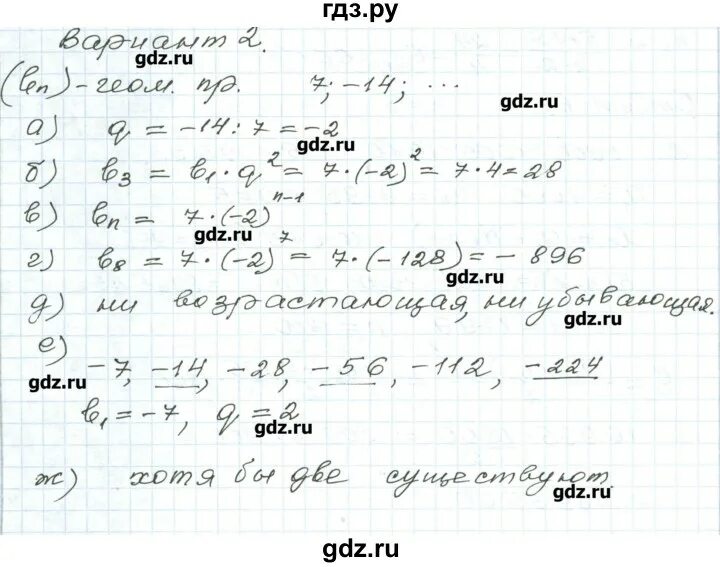 гдз.ру
Вариант 2.
gdz.ru
(bn) - геом. пр. 7; -14; ...
gdz.ru
а) q = -14 : 7 = -2
gdz.ru
б) b₃ = b₁ · q² = 7 · (-2)² = 7 · 4 = 28
в) bn = 7 · (-2)ⁿ⁻¹
gdz.ru
г) b₈ = 7 · (-2)⁷ = 7 · (-128) = - 896
gdz.ru
д) ни возрастающая, ни убывающая.
gdz.ru
е)
-7, -14, -28, -56, -112, -224
gdz.ru
b₁ = -7, q = 2
gdz.ru
ж) хотя бы две существуют
gdz.ru
gdz.ru